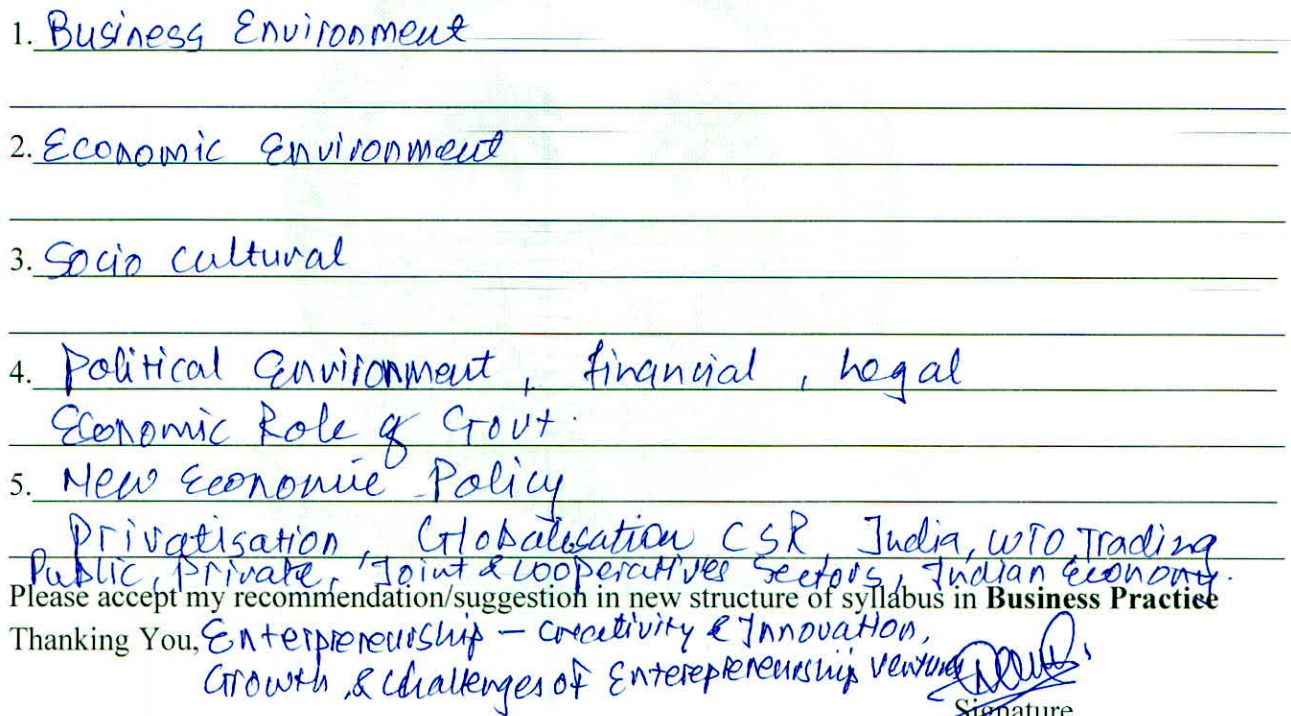 1. Business Environment
2. Economic Environment
3. Socio cultural
4. Political Environment, financial, Legal
Economic Role of Govt.
5. New Economic Policy
Privatisation, Globalisation CSR, India, WTO, Trading
Public, Private, Joint & Cooperatives Sectors, Indian Economy.
Please accept my recommendation/suggestion in new structure of syllabus in Business Practice
Thanking You, Enterpreneurship – Creativity & Innovation,
Growth & Challenges of Enterepreneurship venture
Signature